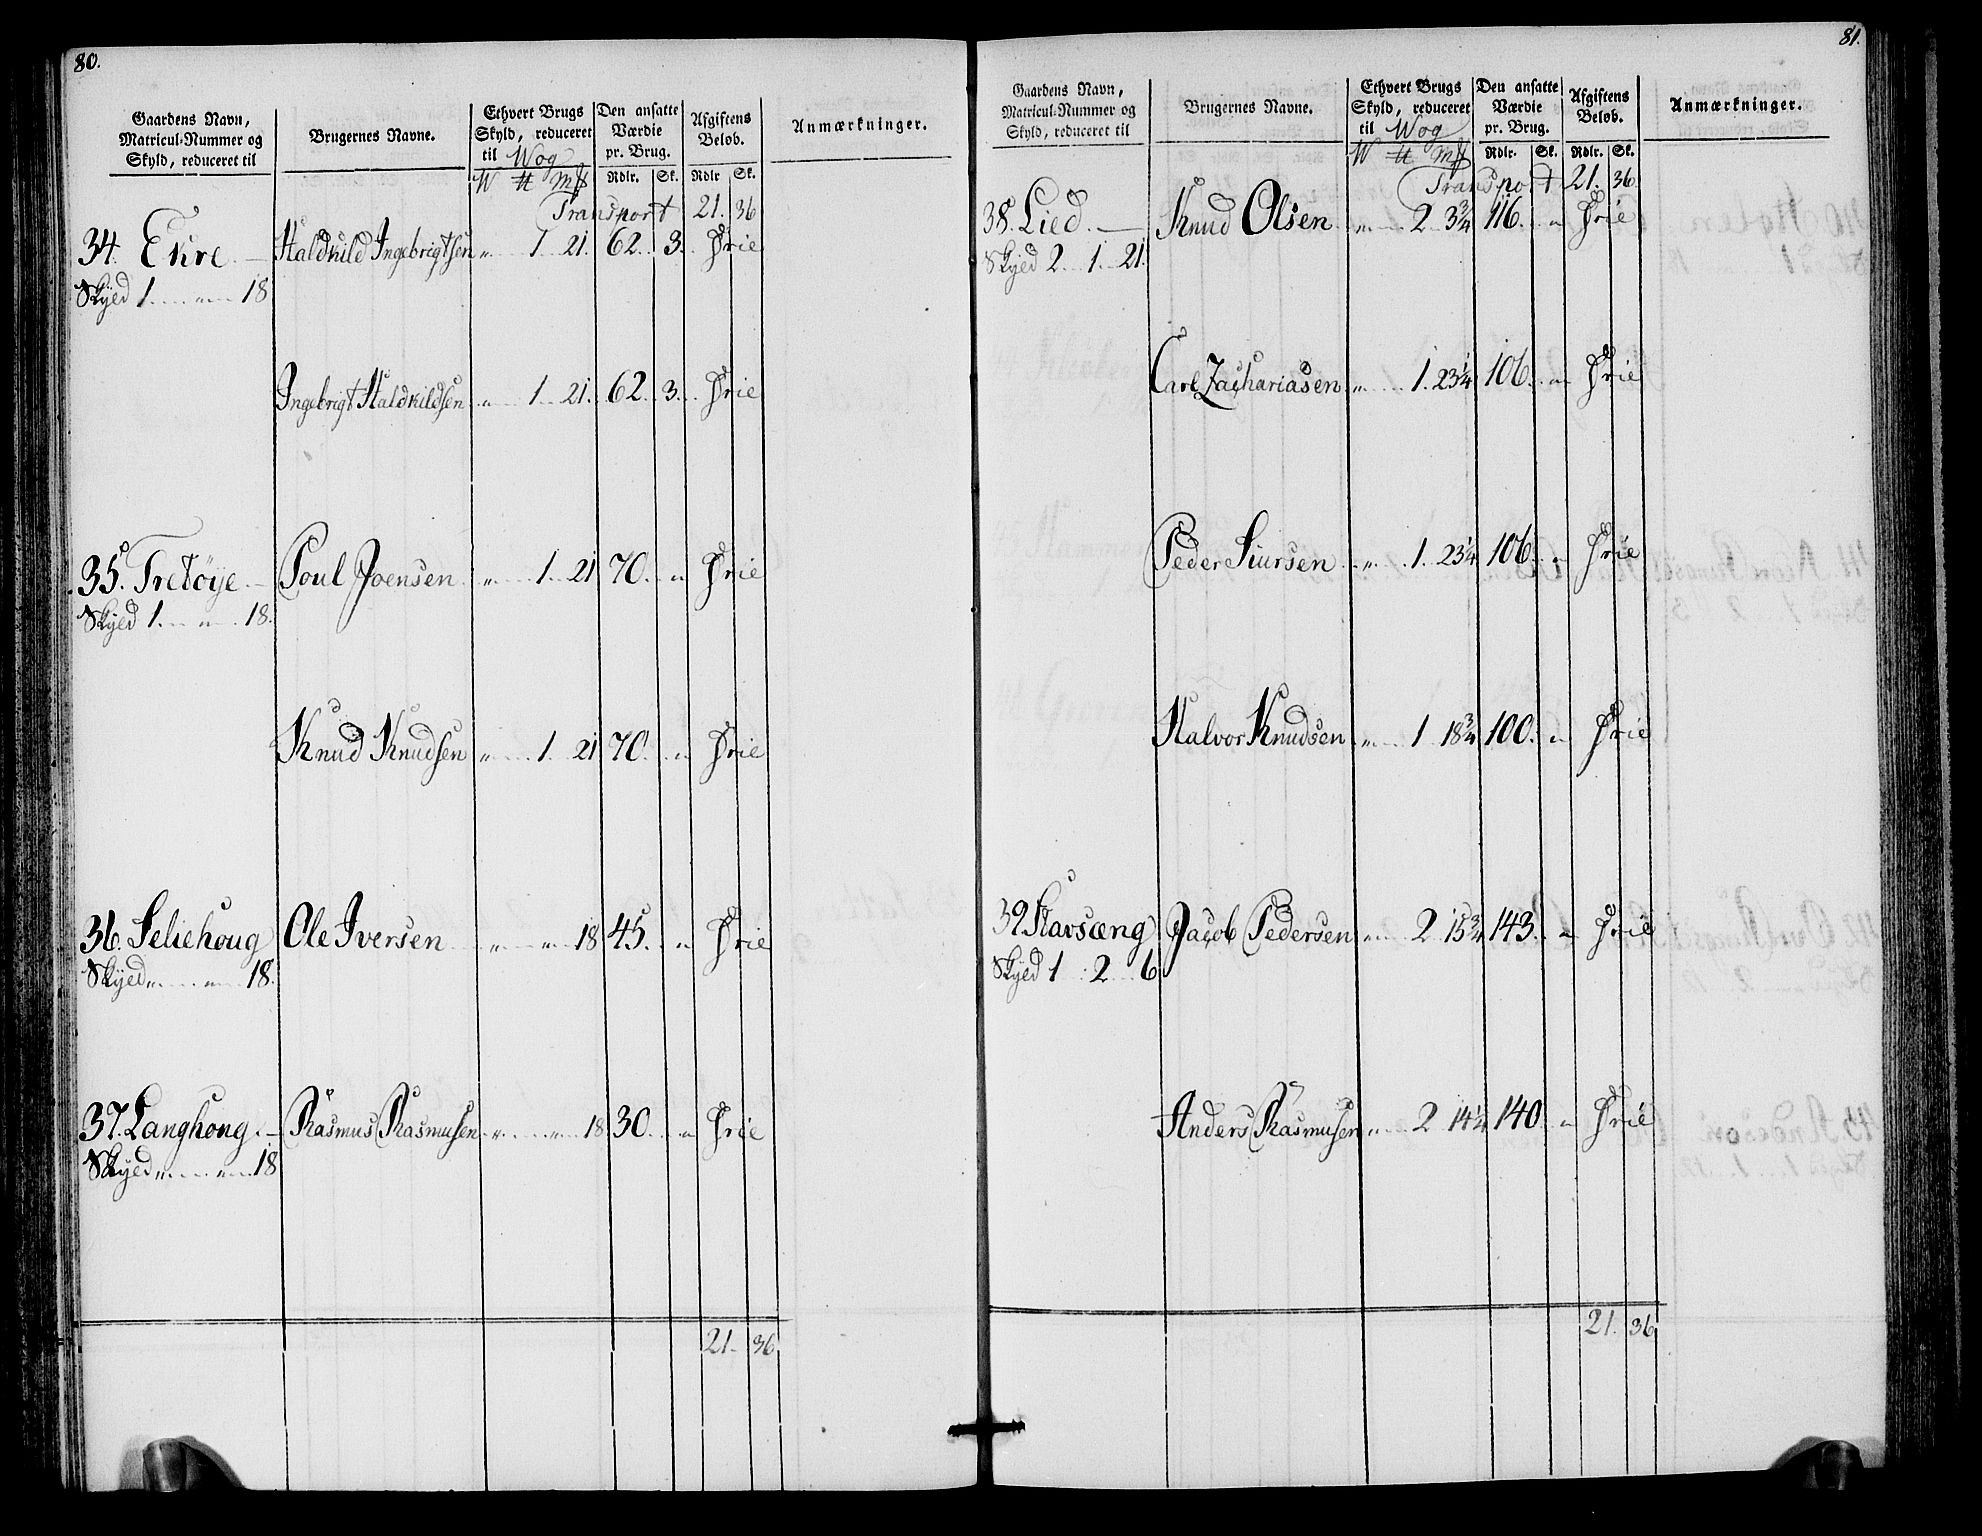 80.
Gaardens Navn,
Matricul-Nummer og
Skyld, reduceret til
Brugernes Navne.
Ethvert Brugs
Skyld, reduceret
til Wog
W ℔ M𝔭
Den ansatte
Værdie
pr. Brug.
Rdlr. Sk.
Afgiftens
Beløb.
Rdlr Sk.
Anmærkninger.
Transport 21. 36
34. Ekre. — Haldkild Ingebrigtsen „ 1 21. 62. 3. Frie
Skyld 1 „ 18
Ingebrigt Haldkildsen „ 1 21. 62. 3. Frie
35. Tretöye. — Poul Joensen „ 1 21 70. „ Frie
Skyld 1 „ 18.
Knud Knudsen „ 1 21 70. „ Frie
36. Seliehoug Ole Iversen „ „ 18 45. „ Frie
Skyld „ „ 18.
37. Langhoug. — Rasmus Rasmusen „ „ 18 30. „ Frie
Skyld „ „ 18
21. 36
81.
Gaardens Navn,
Matricul-Nummer og
Skyld, reduceret til
Brugernes Navne.
Ethvert Brugs
Skyld, reduceret
til Wog
W ℔ M𝔭
Den ansatte
Værdie
pr. Brug.
Rdlr. Sk.
Afgiftens
Beløb.
Rdlr. Sk.
Anmærkninger.
Transport 21. 36.
38. Lied. — Knud Olsen „ 2 3¾ 116. „ Frie
Skyld 2 1 21.
Carl Zachariasen „ 1. 23¼ 106. „ Frie
Peder Siursen „ 1 23¼ 106. „ Frie
Halvor Knudsen „ 1 18¾ 100. „ Frie
39. Stavsæng Jacob Pedersen „ 2 15¾ 143. „ Frie
Skyld 1 2 6
Anders Rasmusen „ 2 14¼ 140. „ Frie
21. 36